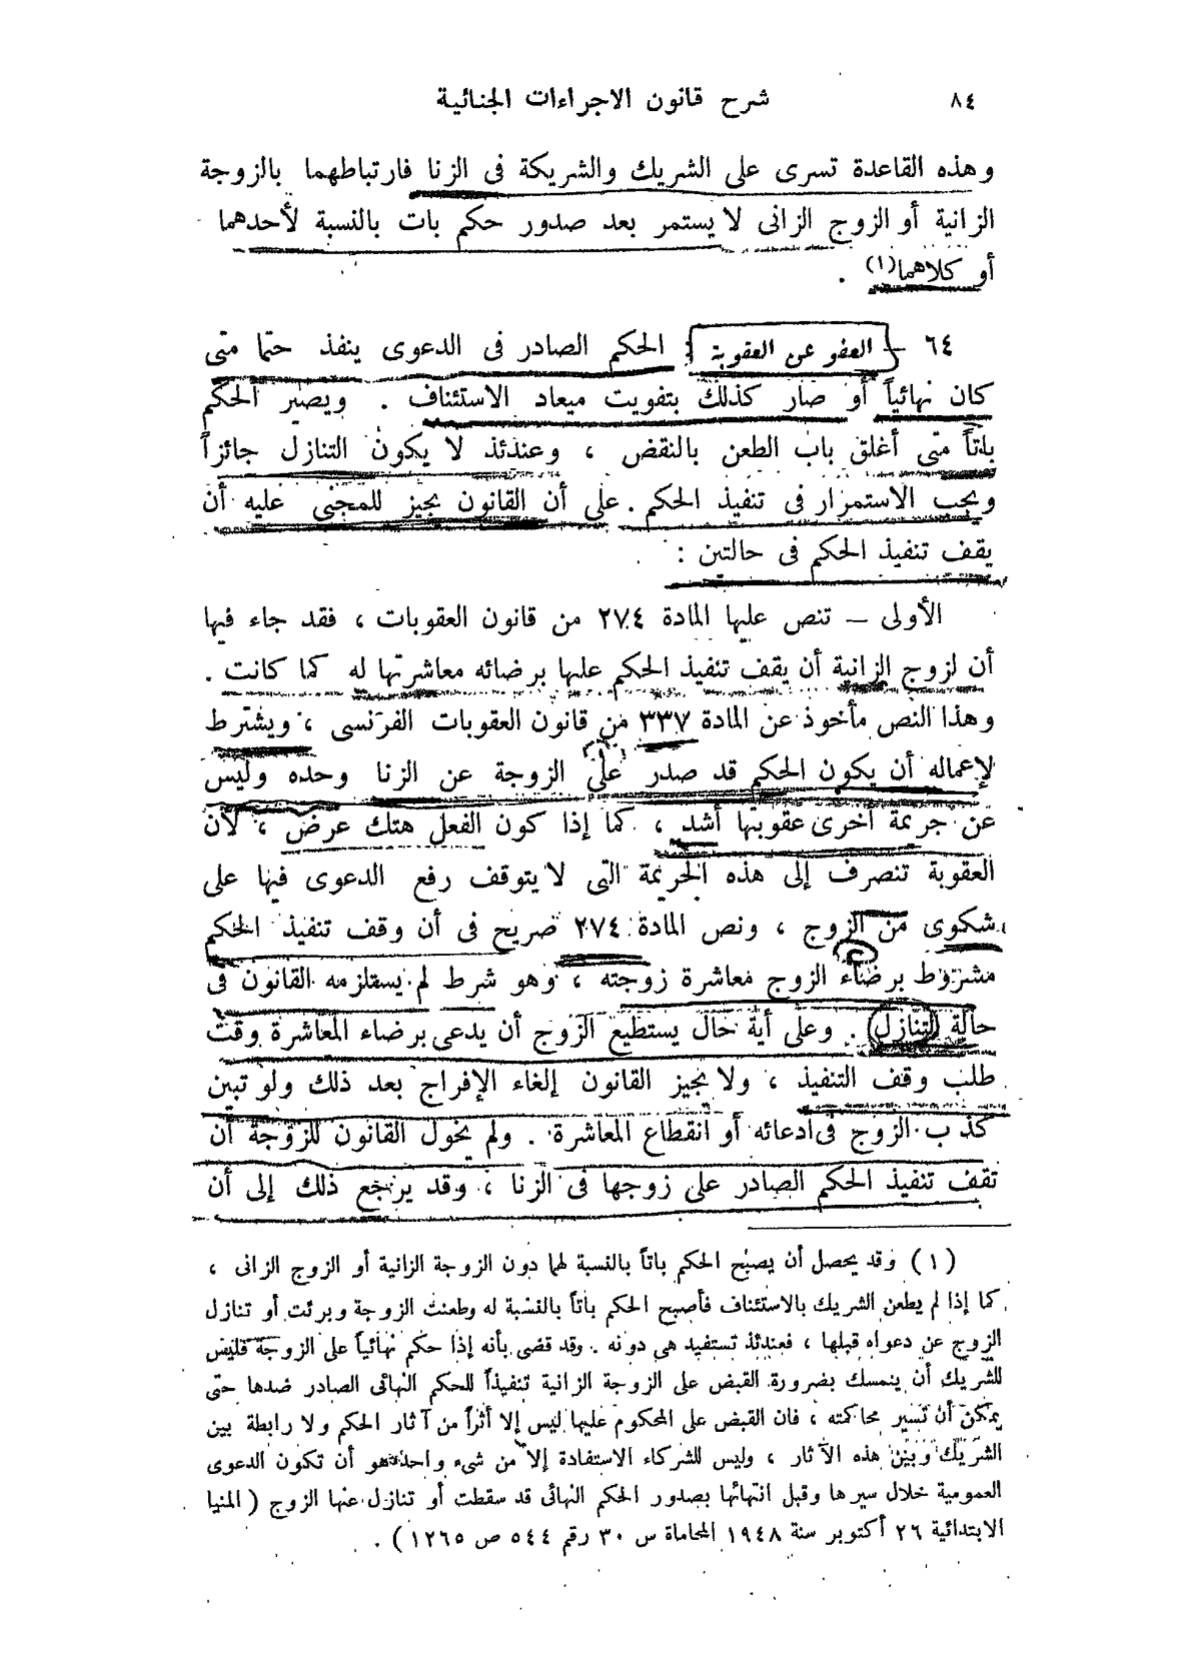 ٨٤
شرح قانون الاجراءات الجنائية
وهذه القاعدة تسرى على الشريك والشريكة فى الزنا فارتباطهما بالزوجة
الزانية أو الزوج الزانى لا يستمر بعد صدور حكم بات بالنسبة لأحدهما
أو كلاهما(١) .
٦٤ – العفو عن العقوبة : الحكم الصادر فى الدعوى ينفذ حتما متى
كان نهائياً أو صار كذلك بتفويت ميعاد الاستئناف . ويصير الحكم
باتاً متى أغلق باب الطعن بالنقض ، وعندئذ لا يكون التنازل جائزاً
ويجب الاستمرار فى تنفيذ الحكم . على أن القانون يجيز للمجنى عليه أن
يقف تنفيذ الحكم فى حالتين :
الأولى – تنص عليها المادة ٢٧٤ من قانون العقوبات ، فقد جاء فيها
أن لزوج الزانية أن يقف تنفيذ الحكم عليها برضائه معاشرتها له كما كانت .
وهذا النص مأخوذ عن المادة ٣٣٧ من قانون العقوبات الفرنسى ، ويشترط
لإعماله أن يكون الحكم قد صدر على الزوجة عن الزنا وحده وليس
عن جريمة أخرى عقوبتها أشد ، كما إذا كون الفعل هتك عرض ، لأن
العقوبة تنصرف إلى هذه الجريمة التى لا يتوقف رفع الدعوى فيها على
شكوى من الزوج ، ونص المادة ٢٧٤ صريح فى أن وقف تنفيذ الحكم
مشروط برضاء الزوج معاشرة زوجته ، وهو شرط لم يستلزمه القانون فى
حالة التنازل . وعلى أية حال يستطيع الزوج أن يدعى برضاء المعاشرة وقت
طلب وقف التنفيذ ، ولا يجيز القانون إلغاء الإفراج بعد ذلك ولو تبين
كذب الزوج فى ادعائه أو انقطاع المعاشرة . ولم يخول القانون للزوجة أن
تقف تنفيذ الحكم الصادر على زوجها فى الزنا ، وقد يرجع ذلك إلى أن
(١) وقد يحصل أن يصبح الحكم باتاً بالنسبة لهما دون الزوجة الزانية أو الزوج الزانى ،
كما إذا لم يطعن الشريك بالاستئناف فأصبح الحكم باتاً بالنسبة له وطعنت الزوجة وبرئت أو تنازل
الزوج عن دعواه قبلها ، فعندئذ تستفيد هى دونه . وقد قضى بأنه إذا حكم نهائياً على الزوجة فليس
للشريك أن يتمسك بضرورة القبض على الزوجة الزانية تنفيذاً للحكم النهائى الصادر ضدها حتى
يمكن أن تسير محاكمته ، فان القبض على المحكوم عليها ليس إلا أثراً من آثار الحكم ولا رابطة بين
الشريك وبين هذه الآثار ، وليس للشركاء الاستفادة إلا من شىء واحد هو أن تكون الدعوى
العمومية خلال سيرها وقبل انتهائها بصدور الحكم النهائى قد سقطت أو تنازل عنها الزوج ( المنيا
الابتدائية ٢٦ أكتوبر سنة ١٩٤٨ المحاماة س ٣٠ رقم ٥٤٤ ص ١٢٦٥ ) .